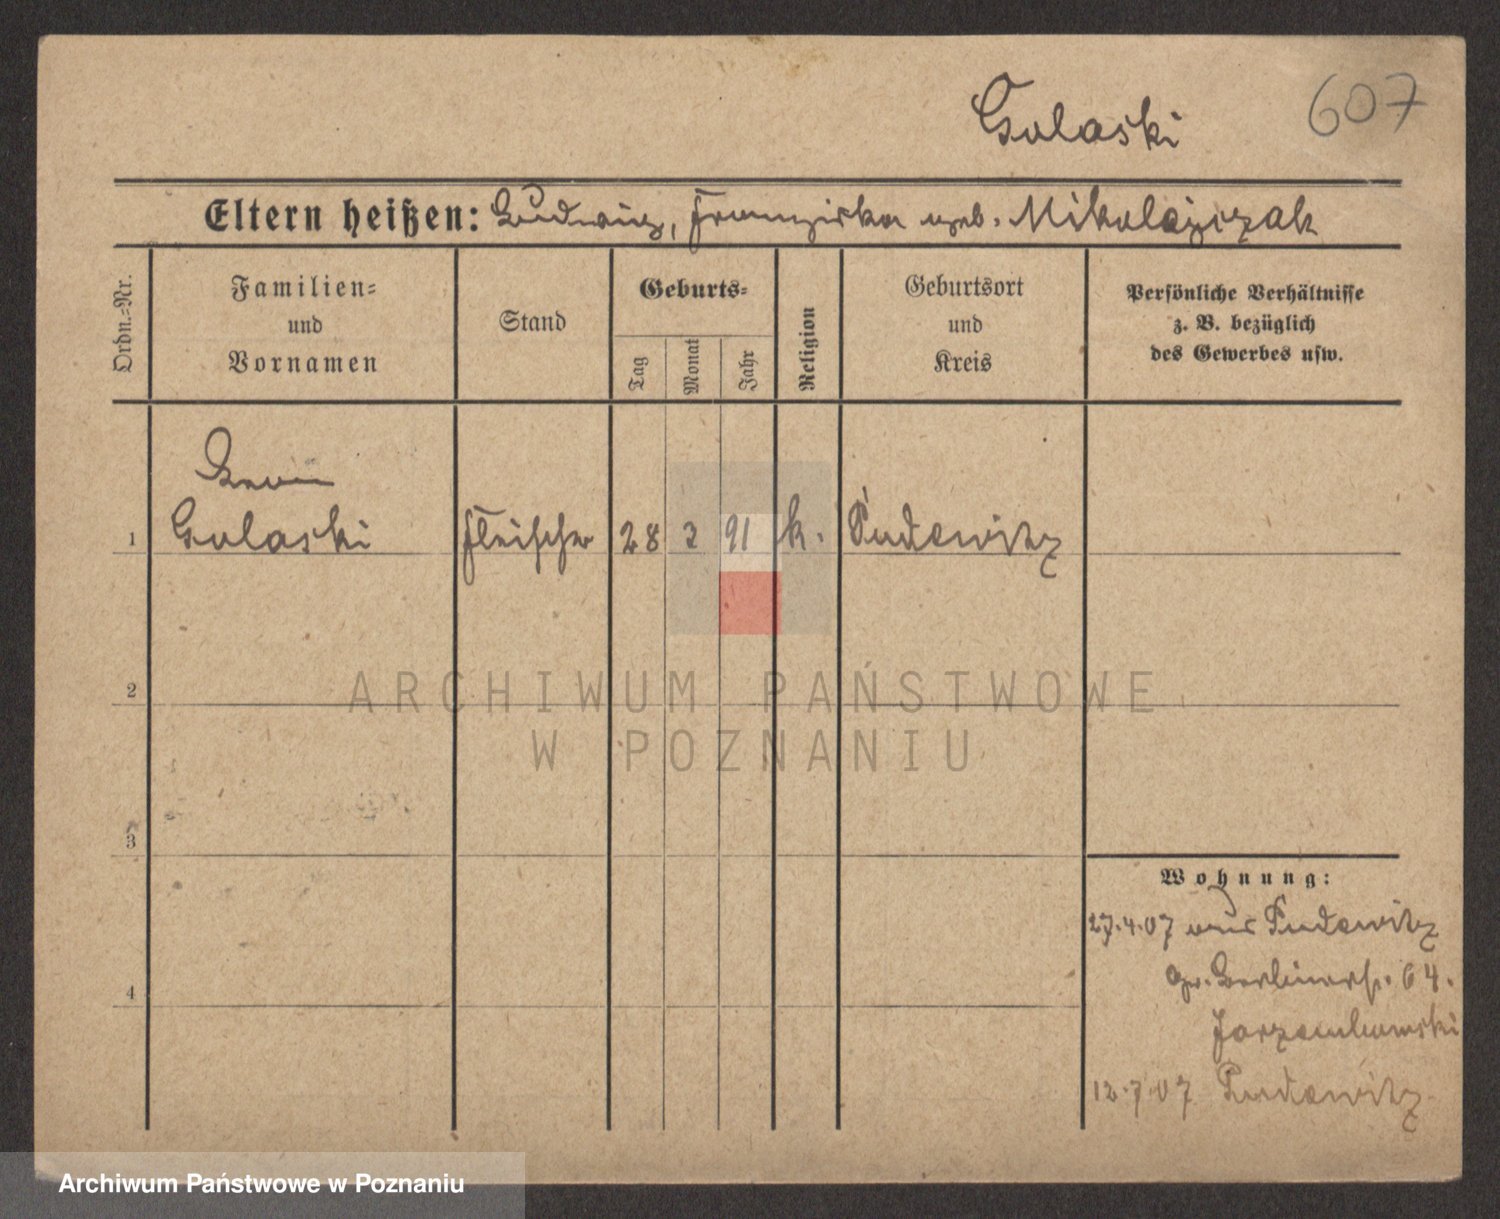 Golaski 607
Eltern heißen: Ludwig, Franziska geb. Mikolajczak
Ordn.-Nr.
Familien-
und
Vornamen
Stand
Geburts-
Tag
Monat
Jahr
Religion
Geburtsort
und
Kreis
Persönliche Verhältnisse
z. B. bezüglich
des Gewerbes usw.
1 Golaski Fleischer 28 2 91 k. Pudewitz
2
3
4
Wohnung:
27.4.07 aus Pudewitz
Gr. Berlinerst. 64.
Jarzembowski
12.7.07 Pudewitz
ARCHIWUM PAŃSTWOWE
W POZNANIU
Archiwum Państwowe w Poznaniu